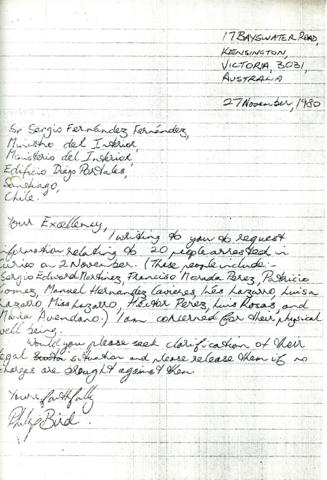 17 BAYSWATER ROAD,
KENSINGTON,
VICTORIA, 3031,
AUSTRALIA
27 November, 1980
Sr Sergio Fernández Fernández,
Ministro del Interior,
Ministerio del Interior,
Edificio Diego Portales,
Santiago,
Chile.
Your Excellency,
I writing to you to request
information relating to 20 people arrested in
Curico on 2 November. (These people include:-
Sergio Edward Martinez, Francisco Morada Perez, Patricio
Gomez, Manuel Hernandez Canieres, Leo Lazarro, Luisa
Lazarro, Miss Lazarro, Hector Perez, Luis Rosas, and
Maria Avendano.) I am concerned for their physical
well being.
Would you please seek clarification of their
legal situation and please release them if no
charges are brought against them
Yours faithfully
Philip Bird.